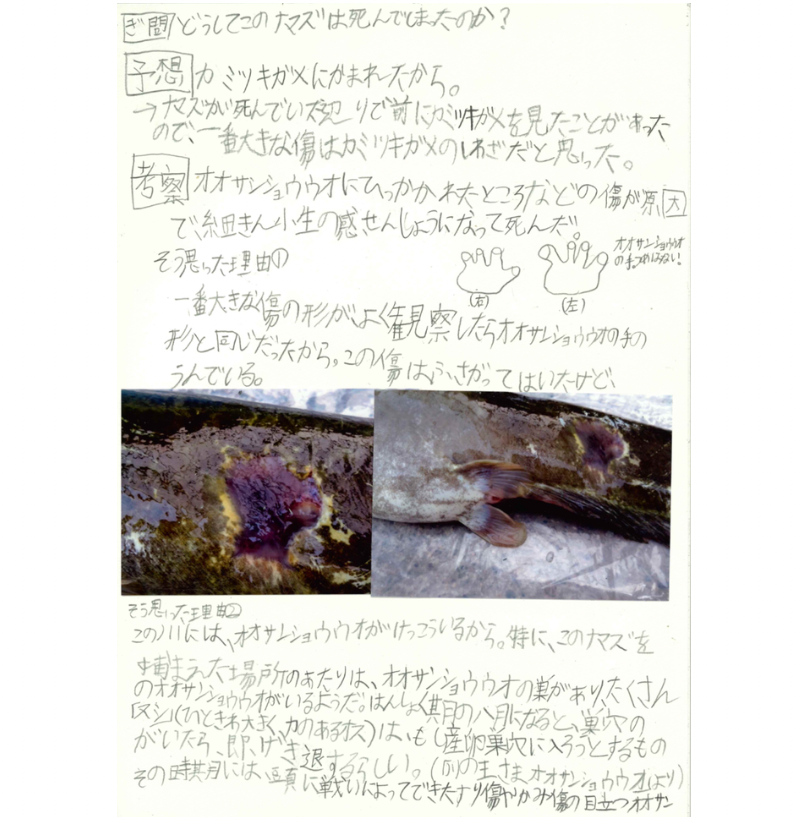 ぎ問 どうしてこのナマズは死んでしまったのか？
予想 カミツキガメにかまれたから。
→ナマズが死んでいた辺りで前にカミツキガメを見たことがあった
ので、一番大きな傷はカミツキガメのしわざだと思った。
考察 オオサンショウウオにひっかかれたところなどの傷が原因
で、細きん小生の感せんしょうになって死んだ。
そう思った理由①
オオサンショウウオ
の手。つめはない！
(右) (左)
一番大きな傷の形がよく観察したらオオサンショウウオの手の
形と同じだったから。この傷はふさがってはいたけど、
うんでいる。
そう思った理由②
この川には、オオサンショウウオがけっこういるから。特に、このナマズを
捕まえた場所のあたりは、オオサンショウウオの巣がありたくさん
のオオサンショウウオがいるようだ。はんしょく期の八月になると、巣穴の
「ヌシ」(ひときわ大きく、力のあるオス)は、もし産卵巣穴に入ろうとするもの
がいたら、即、げき退するらしい。(「川の王さまオオサンショウウオ」より)
その時期には、頭に戦いによってできたすり傷やかみ傷の目立つオオサン